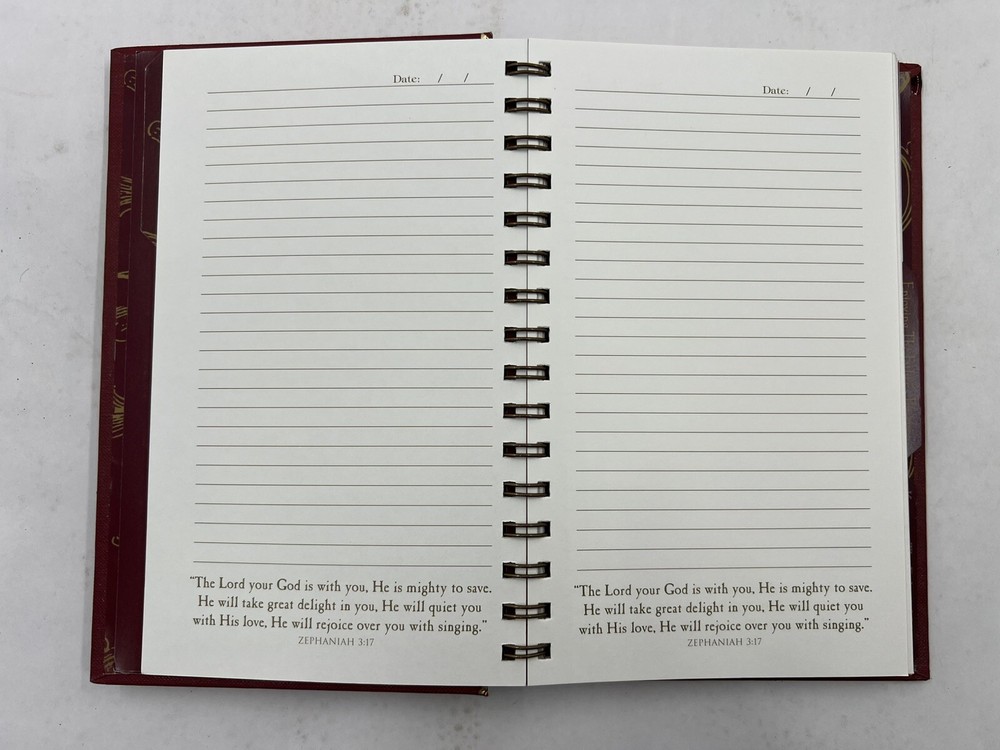 Date: / /
"The Lord your God is with you, He is mighty to save.
He will take great delight in you, He will quiet you
with His love, He will rejoice over you with singing."
ZEPHANIAH 3:17
Date: / /
"The Lord your God is with you, He is mighty to save.
He will take great delight in you, He will quiet you
with His love, He will rejoice over you with singing."
ZEPHANIAH 3:17